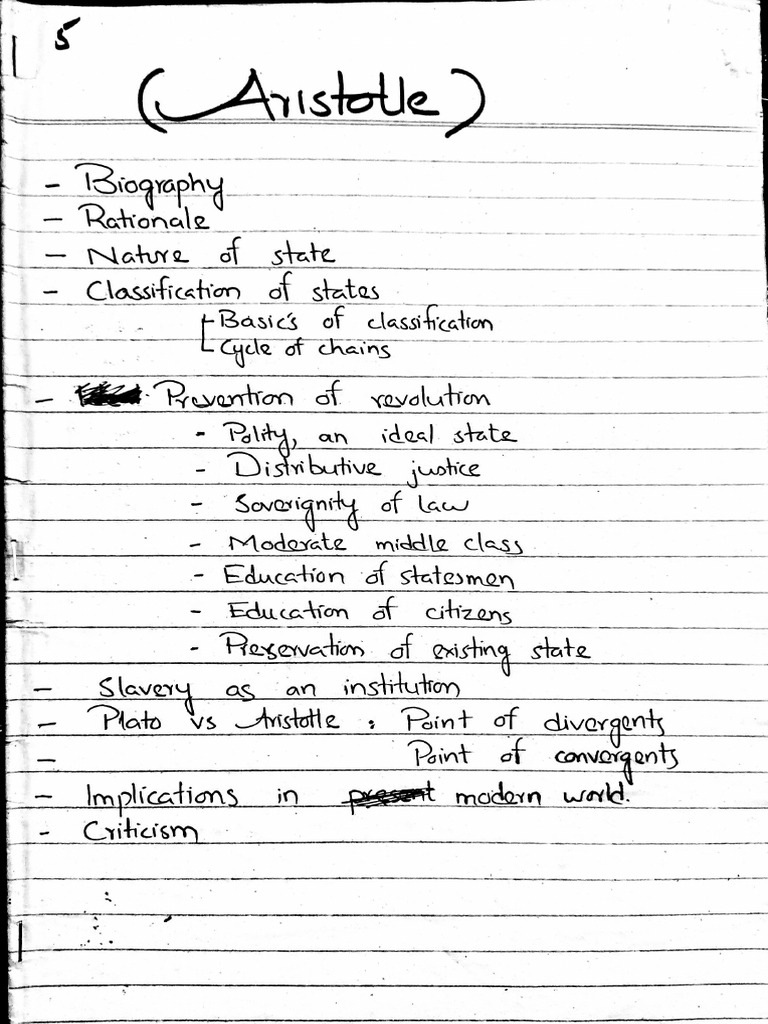 5
(Aristotle)
- Biography
- Rationale
- Nature of state
- Classification of states
Basic's of classification
Cycle of chains
- Prevention of revolution
- Polity, an ideal state
- Distributive justice
- Soverignity of law
- Moderate middle class
- Education of statesmen
- Education of citizens
- Preservation of existing state
- Slavery as an institution
- Plato vs Aristotle : Point of divergents
- Point of convergents
- Implications in present modern world.
- Criticism